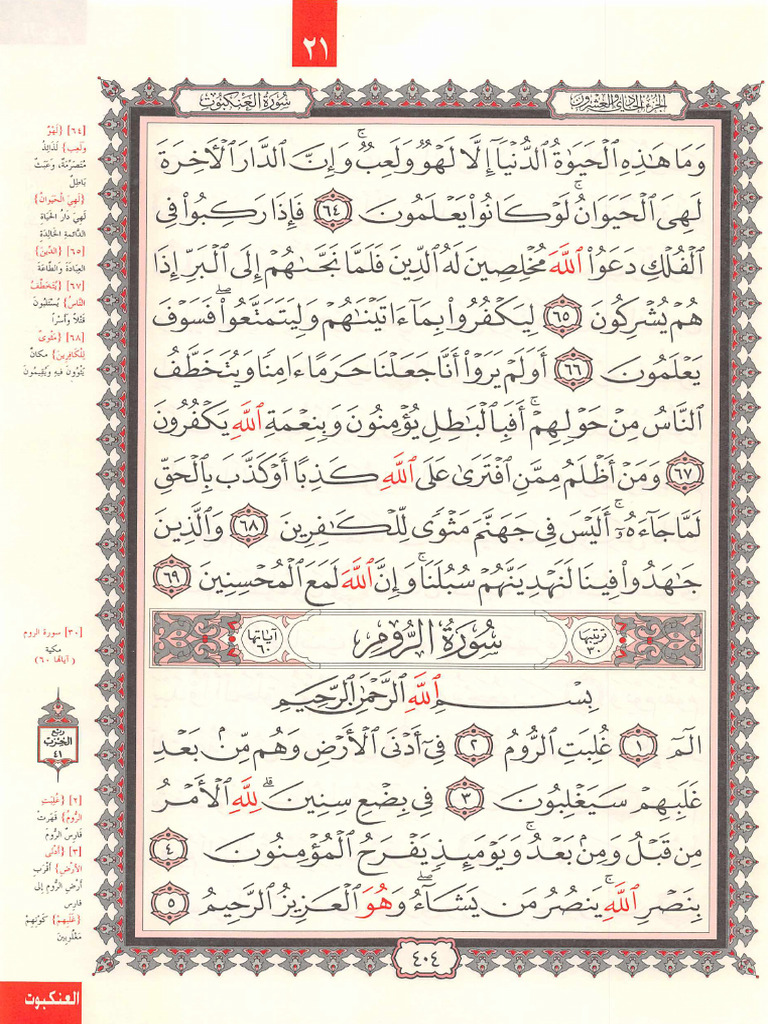 ٢١
سُورَةُ العَنكَبُوت
الجزء الحادي والعشرون
وَمَا هَٰذِهِ ٱلۡحَيَوٰةُ ٱلدُّنۡيَآ إِلَّا لَهۡوٞ وَلَعِبٞۚ وَإِنَّ ٱلدَّارَ ٱلۡأٓخِرَةَ
لَهِيَ ٱلۡحَيَوَانُۚ لَوۡ كَانُواْ يَعۡلَمُونَ ٦٤ فَإِذَا رَكِبُواْ فِي
ٱلۡفُلۡكِ دَعَوُاْ ٱللَّهَ مُخۡلِصِينَ لَهُ ٱلدِّينَ فَلَمَّا نَجَّىٰهُمۡ إِلَى ٱلۡبَرِّ إِذَا
هُمۡ يُشۡرِكُونَ ٦٥ لِيَكۡفُرُواْ بِمَآ ءَاتَيۡنَٰهُمۡ وَلِيَتَمَتَّعُواْۖ فَسَوۡفَ
يَعۡلَمُونَ ٦٦ أَوَلَمۡ يَرَوۡاْ أَنَّا جَعَلۡنَا حَرَمًا ءَامِنٗا وَيُتَخَطَّفُ
ٱلنَّاسُ مِنۡ حَوۡلِهِمۡۚ أَفَبِٱلۡبَٰطِلِ يُؤۡمِنُونَ وَبِنِعۡمَةِ ٱللَّهِ يَكۡفُرُونَ
٦٧ وَمَنۡ أَظۡلَمُ مِمَّنِ ٱفۡتَرَىٰ عَلَى ٱللَّهِ كَذِبًا أَوۡ كَذَّبَ بِٱلۡحَقِّ
لَمَّا جَآءَهُۥٓۚ أَلَيۡسَ فِي جَهَنَّمَ مَثۡوٗى لِّلۡكَٰفِرِينَ ٦٨ وَٱلَّذِينَ
جَٰهَدُواْ فِينَا لَنَهۡدِيَنَّهُمۡ سُبُلَنَاۚ وَإِنَّ ٱللَّهَ لَمَعَ ٱلۡمُحۡسِنِينَ ٦٩
ترتيبها ٣٠ سُورَةُ الرُّومِ آياتها ٦٠
بِسۡمِ ٱللَّهِ ٱلرَّحۡمَٰنِ ٱلرَّحِيمِ
الٓمٓ ١ غُلِبَتِ ٱلرُّومُ ٢ فِيٓ أَدۡنَى ٱلۡأَرۡضِ وَهُم مِّنۢ بَعۡدِ
غَلَبِهِمۡ سَيَغۡلِبُونَ ٣ فِي بِضۡعِ سِنِينَۗ لِلَّهِ ٱلۡأَمۡرُ
مِن قَبۡلُ وَمِنۢ بَعۡدُۚ وَيَوۡمَئِذٖ يَفۡرَحُ ٱلۡمُؤۡمِنُونَ ٤
بِنَصۡرِ ٱللَّهِۚ يَنصُرُ مَن يَشَآءُۖ وَهُوَ ٱلۡعَزِيزُ ٱلرَّحِيمُ ٥
٤٠٤
[٦٤] {لَهْوٌ
وَلَعِبٌ} لَذَائِذُ
مُتَصَرِّمَةٌ، وَعَبَثٌ
بَاطِلٌ
{لَهِيَ الْحَيَوَانُ}
لَهِيَ دَارُ الْحَيَاةِ
الدَّائِمَةِ الْخَالِدَةِ
[٦٥] {الدِّينَ}
العِبَادَةَ وَالطَّاعَةَ
[٦٧] {يُتَخَطَّفُ
النَّاسُ} يُسْتَلَبُونَ
قَتْلاً وَأَسْراً
[٦٨] {مَثْوىً
لِلْكَافِرِينَ} مَكَانٌ
يَثْوُونَ فِيهِ وَيُقِيمُونَ
[٣٠] سورة الروم
مكية
(آياتها ٦٠)
ربع
الحزب
٤١
[٢] {غُلِبَتِ
الرُّومُ} قَهَرَتْ
فَارِسُ الرُّومَ
[٣] {أَدْنَى
الأَرْضِ} أَقْرَبِ
أَرْضِ الرُّومِ إِلَى
فَارِسَ
{غَلَبِهِمْ} كَوْنِهِمْ
مَغْلُوبِينَ
العنكبوت